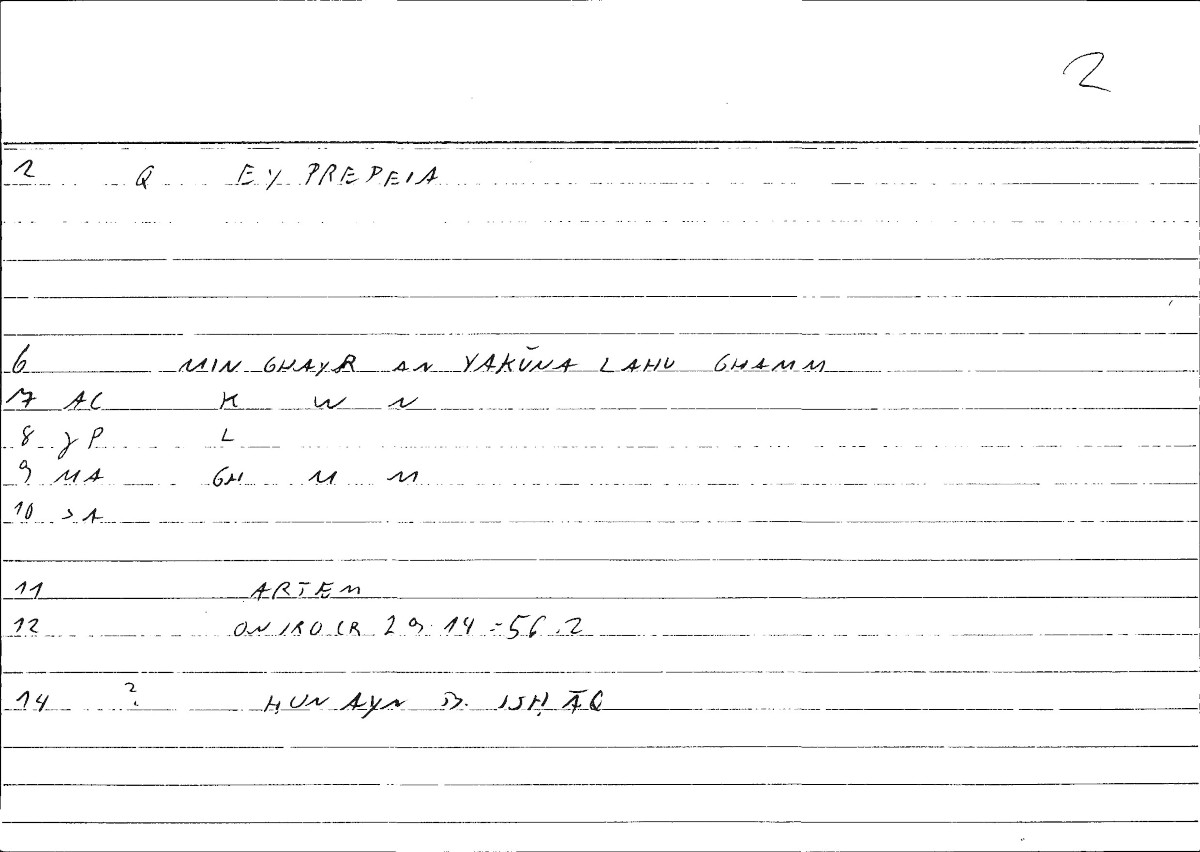 2
2 Q EY PREPEIA
6 MIN GHAYR AN YAKŪNA LAHU GHAMM
7 AC K W N
8 γP L
9 MA GH M M
10 >A
11 ARTEM
12 ONIROCR 29.14 = 56.2
14 ? ḤUNAYN B. ISḤĀQ